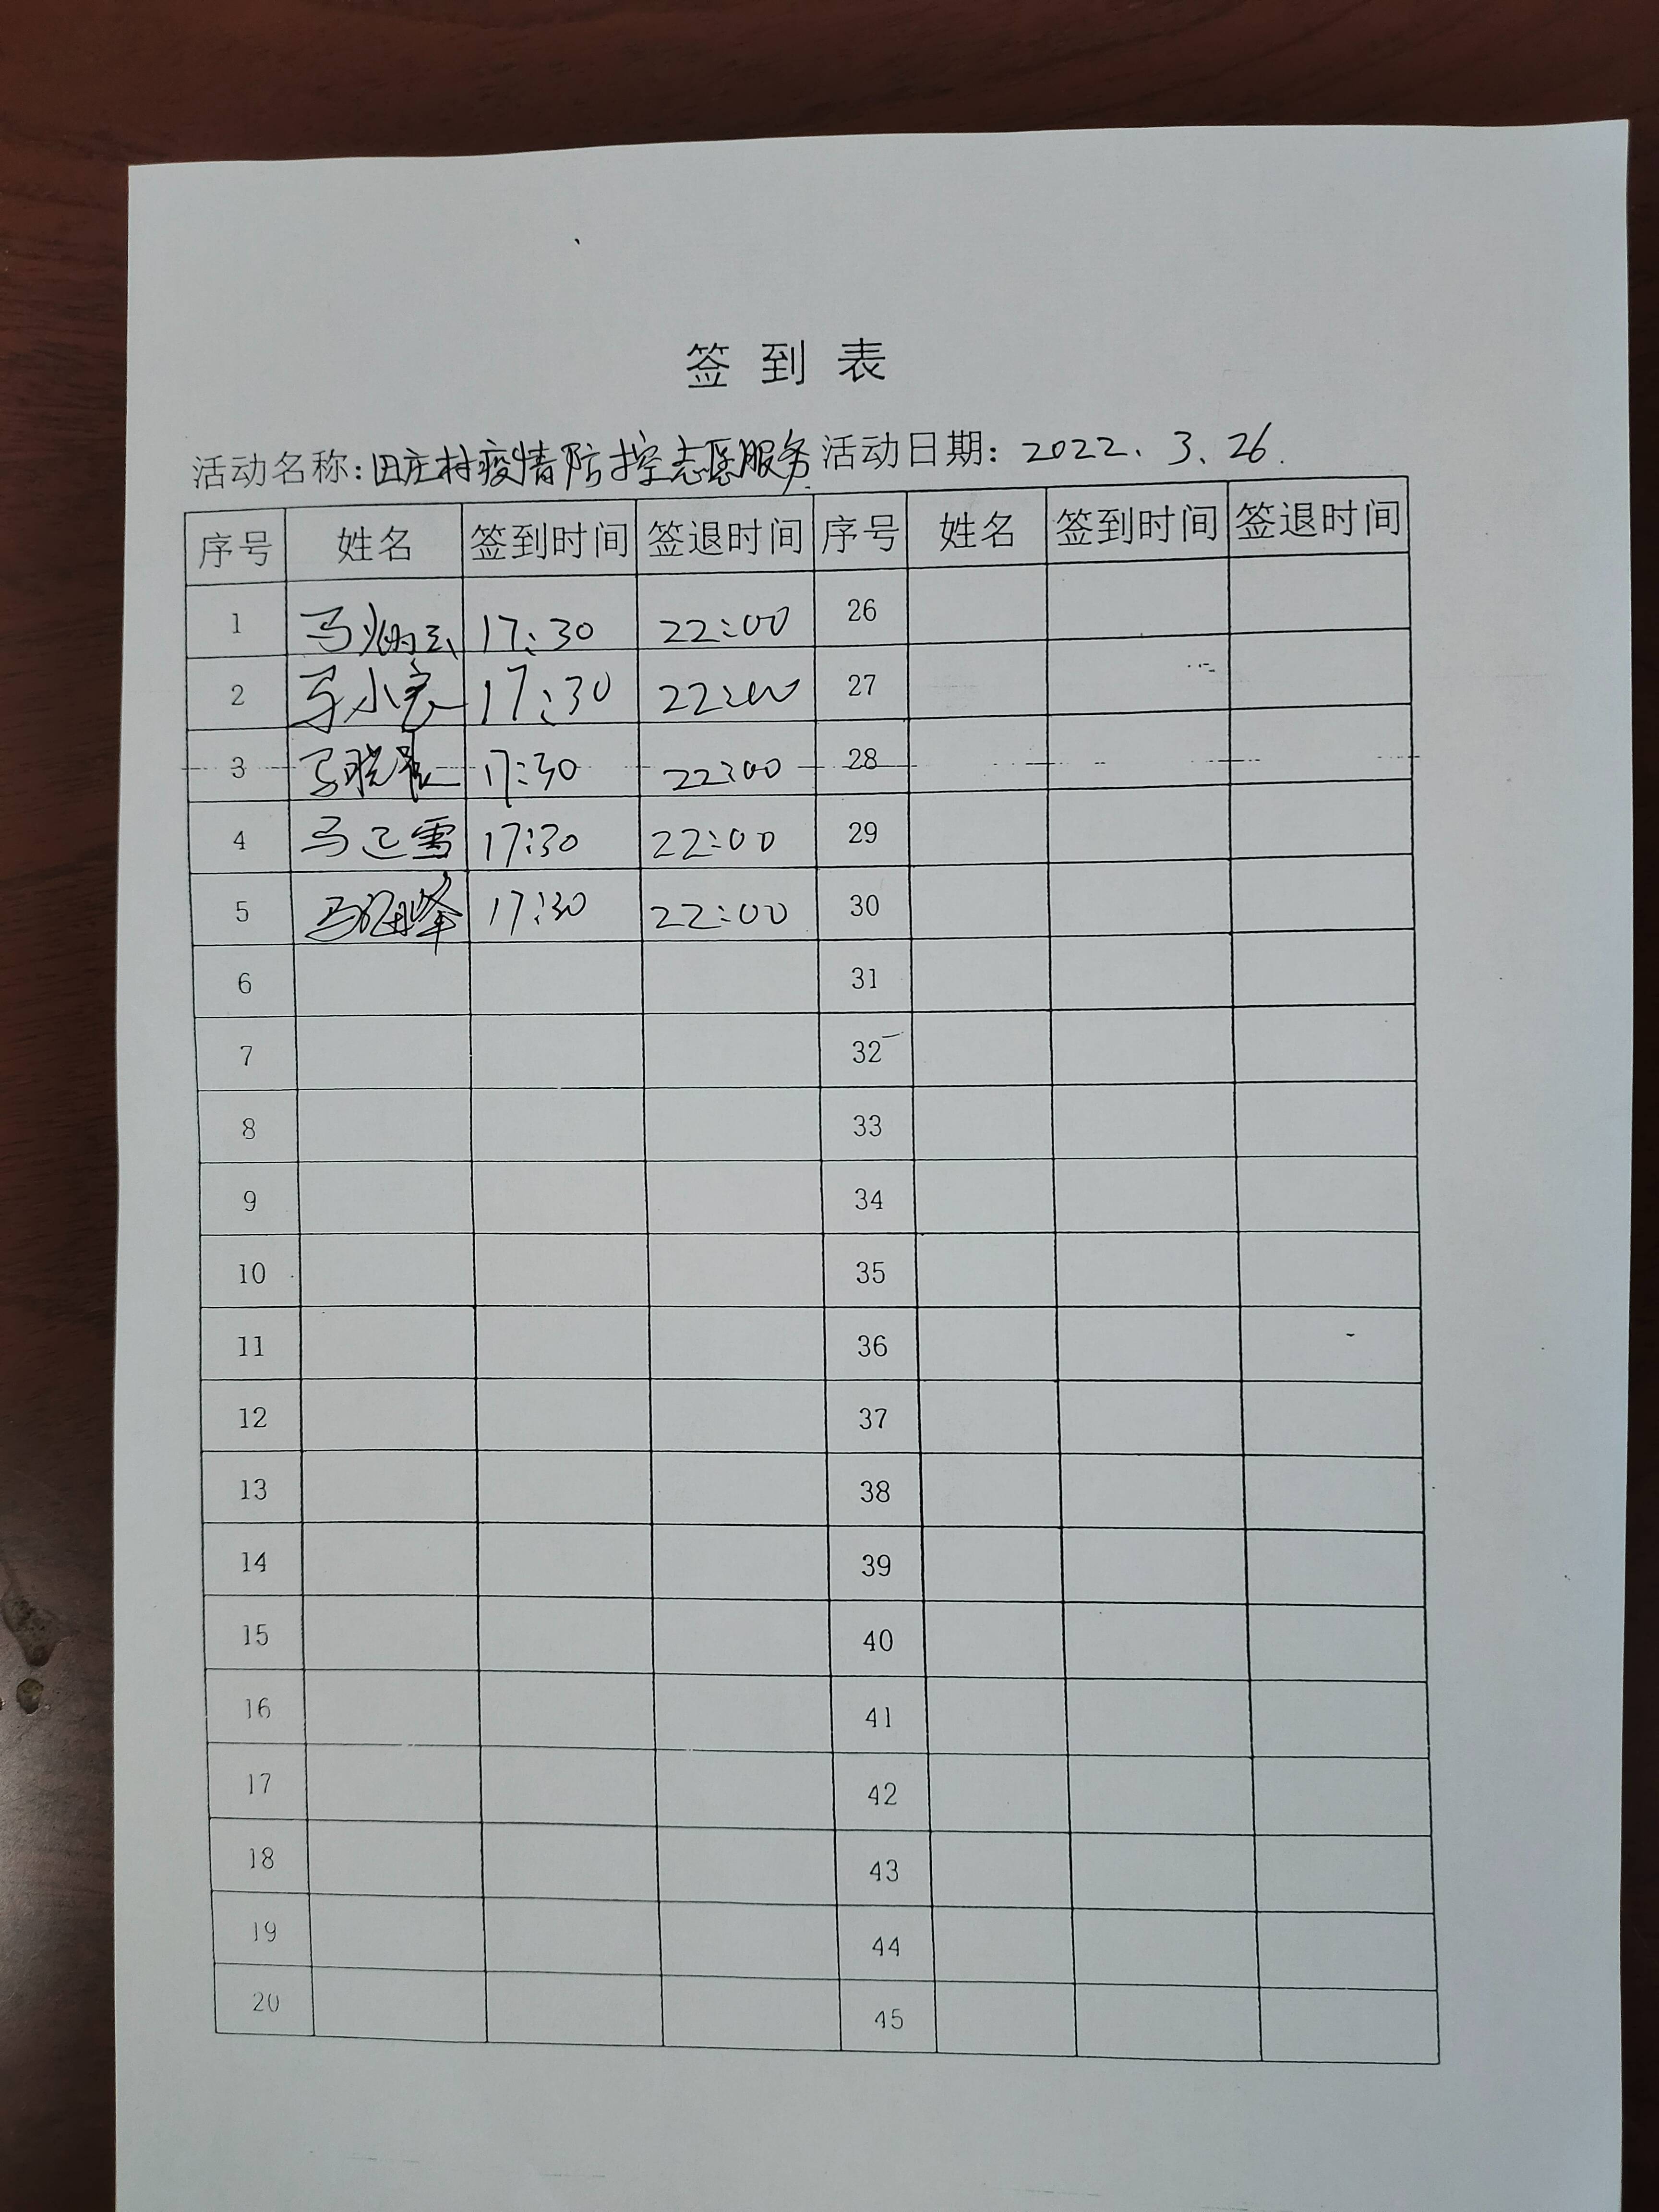 签到表
活动名称:田庄村疫情防控志愿服务 活动日期: 2022.3.26.
序号 姓名 签到时间 签退时间 序号 姓名 签到时间 签退时间
1 马炳云 17:30 22:00 26
2 马小 17:30 22:00 27
3 马晓 17:30 22:00 28
4 马 雪 17:30 22:00 29
5 马 峰 17:30 22:00 30
6 31
7 32
8 33
9 34
10 35
11 36
12 37
13 38
14 39
15 40
16 41
17 42
18 43
19 44
20 45